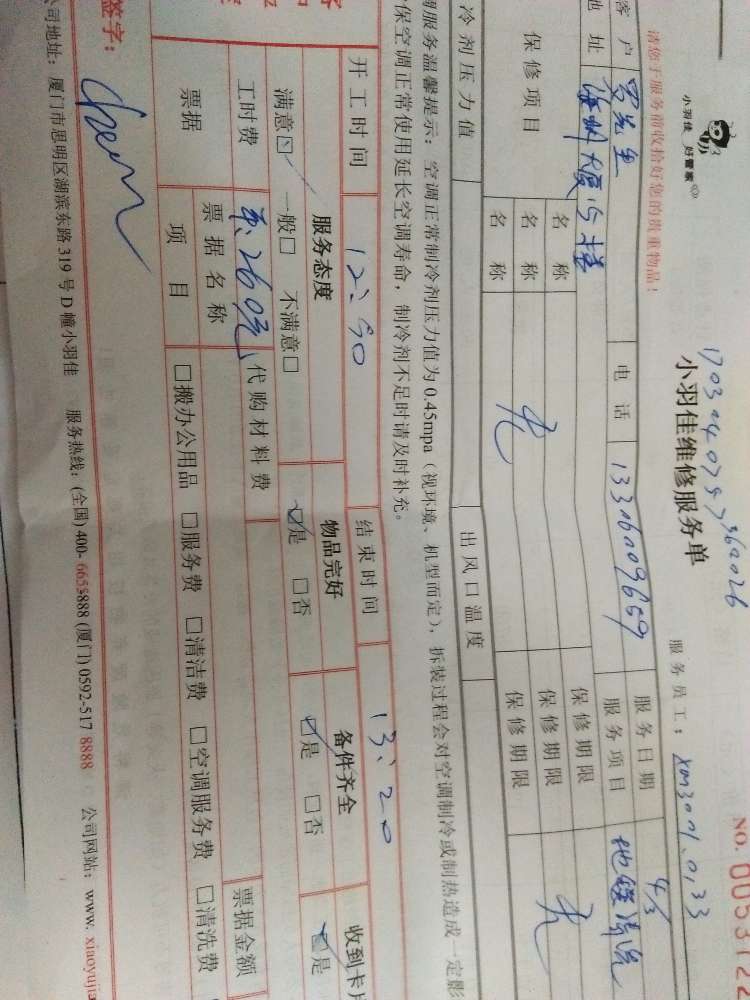 小羽佳 好管家
请您于服务前收拾好您的贵重物品!
170304075736026
小羽佳维修服务单
NO. 0053122
服务员工: xm3001、0133
客户 贾先生 电话 13306009659 服务日期 4/3
地址 海翔大厦15楼 服务项目 地毯清洗
保修项目 名称 无 保修期限 无
名称 保修期限
名称 保修期限
冷剂压力值 出风口温度
调服务温馨提示: 空调正常制冷剂压力值为0.45mpa(视环境、机型而定), 拆装过程会对空调制冷或制热造成一定影
保空调正常使用延长空调寿命, 制冷剂不足时请及时补充。
开工时间 12:50 结束时间 13:20
服务态度 物品完好 备件齐全 收到卡片
满意☑ 一般□ 不满意□ ☑是 □否 ☑是 □否 ☑是
工时费 平、260元 代购材料费
票据 票据名称 票据金额
项目 □搬办公用品 □服务费 □清洁费 □空调服务费 □清洗费
签字: chen
公司地址: 厦门市思明区湖滨东路319号D幢小羽佳 服务热线: (全国) 400-6655888 (厦门) 0592-517 8888 公司网站: www. xiaoyujia